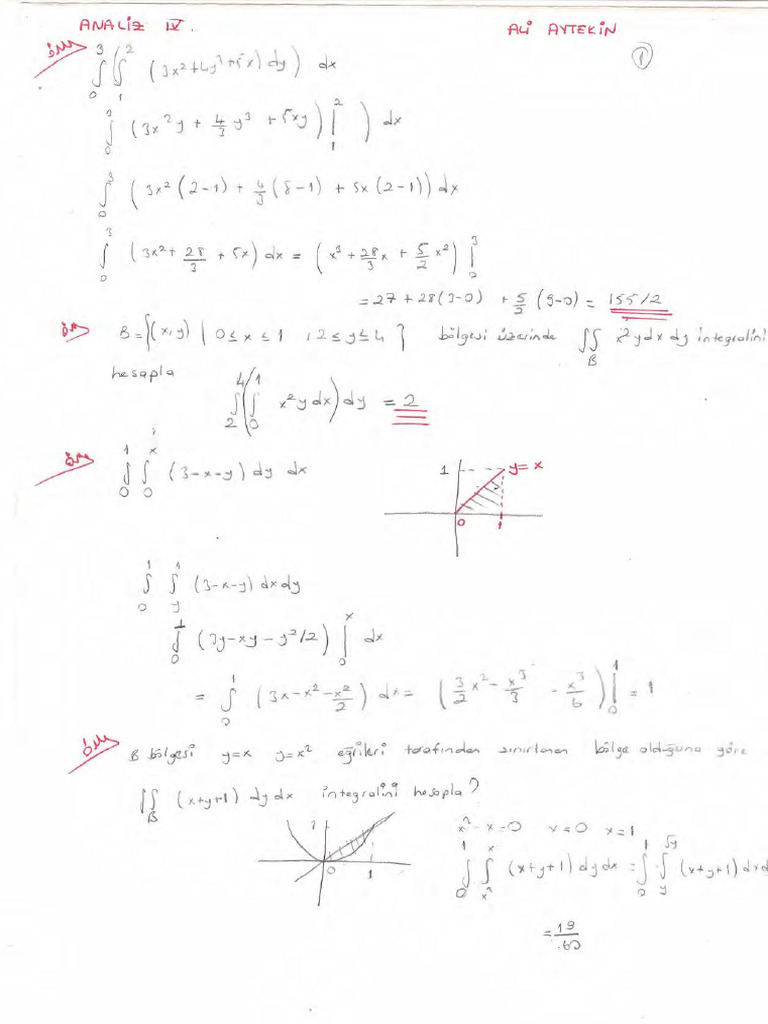 ANALİZ IV. ALİ AYTEKİN
örn 1
∫₀³ (∫₁² (3x²+4y³+5x) dy) dx
∫₀³ (3x²y + 4/3 y³ + 5xy) |₁² ) dx
∫₀³ (3x² (2-1) + 4/3 (8-1) + 5x (2-1)) dx
∫₀³ (3x² + 28/3 + 5x) dx = (x³ + 28/3 x + 5/2 x²) |₀³
= 27 + 28(3-0) + 5/2 (9-0) = 155/2
örn B = {(x,y) | 0 ≤ x ≤ 1 , 2 ≤ y ≤ 4 } bölgesi üzerinde ∬_B x²y dx dy integralini
hesapla
∫₂⁴ (∫₀¹ x²y dx) dy = 2
örn ∫₀¹ ∫₀ˣ (3-x-y) dy dx
1 y=x
0 1
∫₀¹ ∫_y¹ (3-x-y) dx dy
∫₀¹ (3y-xy-y²/2) |₀ˣ dx
= ∫₀¹ (3x-x²-x²/2) dx = (3/2 x² - x³/3 - x³/6) |₀¹ = 1
örn B bölgesi y=x y=x² eğrileri tarafından sınırlanan bölge olduğuna göre
∬_B (x+y+1) dy dx integralini hesapla?
1
0 1
x²-x=0 x=0 x=1
∫₀¹ ∫_{x²}^x (x+y+1) dy dx = ∫₀¹ ∫_y^{√y} (x+y+1) dx d
= 19/60